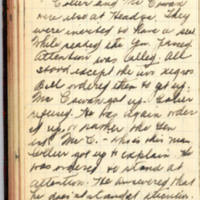 Lolier and Mr Cowan
were also at Headqs. They
were invited to have a seat
While seated the Gen. passed
Attention was called. All
stood except the two negroes
Bill ordered them to get up.
Mr Cowan got up. Lolier
refused. He was again order
ed up, or
Mr C. - who is this man
Lolier got up to explain. He
was ordered to stand at
attention. He answered that
he doesn't stand at attention.